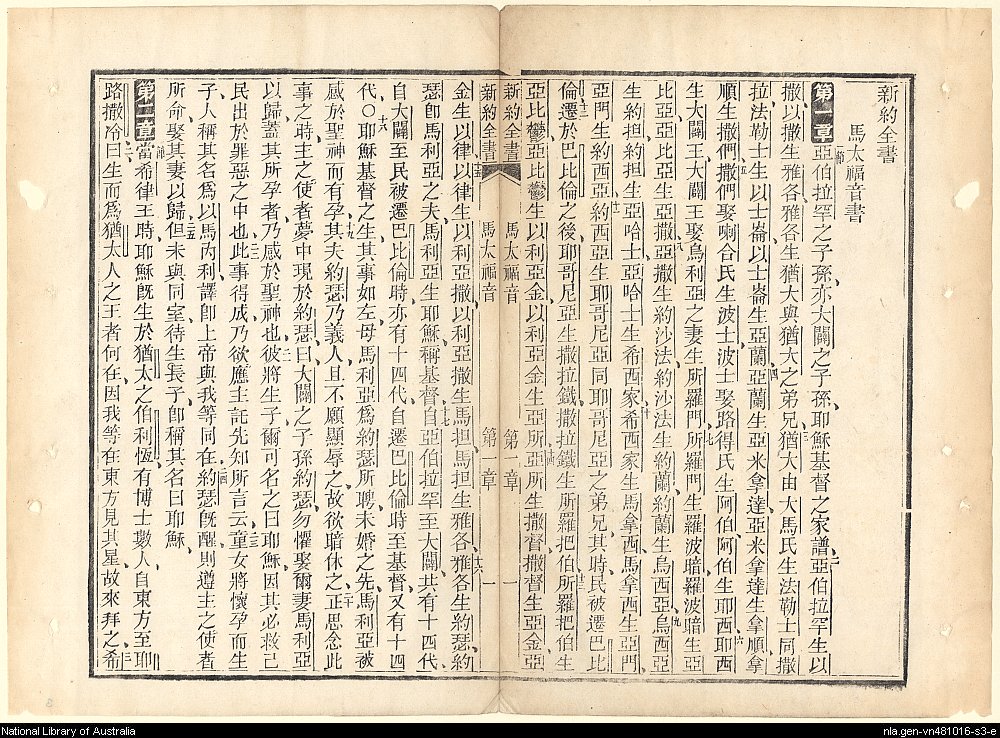 新約全書
馬太福音書
第一章亞伯拉罕之子孫亦大闢之子孫耶穌基督之家譜亞伯拉罕生以
撒以撒生雅各雅各生猶大與猶大之弟兄猶大由大馬氏生法勒士同撒
拉法勒士生以士崙以士崙生亞蘭亞蘭生亞米拿達亞米拿達生拿順拿
順生撒們撒們娶喇合氏生波士波士娶路得氏生阿伯阿伯生耶西耶西
生大闢王大闢王娶烏利亞之妻生所羅門所羅門生羅波暗羅波暗生亞
比亞亞比亞生亞撒亞撒生約沙法約沙法生約蘭約蘭生烏西亞烏西亞
生約担約担生亞哈士亞哈士生希西家希西家生馬拿西馬拿西生亞們
亞們生約西亞約西亞生耶哥尼亞同耶哥尼亞之弟兄其時民被遷巴比
倫遷於巴比倫之後耶哥尼亞生撒拉鐵撒拉鐵生所羅把伯所羅把伯生
亞比鬱亞比鬱生以利亞金以利亞金生亞所亞所生撒督撒督生亞金亞
新約全書 馬太福音 第一章 一
新約全書 馬太福音 第一章 一
金生以律以律生以利亞撒以利亞撒生馬坦馬坦生雅各雅各生約瑟約
瑟卽馬利亞之夫馬利亞生耶穌稱基督自亞伯拉罕至大闢共有十四代
自大闢至民被遷巴比倫時亦有十四代自遷巴比倫時至基督又有十四
代○耶穌基督之生其事如左母馬利亞爲約瑟所聘未婚之先馬利亞被
感於聖神而有孕其夫約瑟乃義人且不願顯辱之故欲暗休之正思念此
事之時主之使者夢中現於約瑟曰大闢之子孫約瑟勿懼娶爾妻馬利亞
以歸蓋其所孕者乃感於聖神也彼將生子爾可名之曰耶穌因其必救己
民出於罪惡之中也此事得成乃欲應主託先知所言云童女將懷孕而生
子人稱其名爲以馬內利譯卽上帝與我等同在約瑟旣醒則遵主之使者
所命娶其妻以歸但未與同室待生長子卽稱其名曰耶穌
第二章當希律王時耶穌旣生於猶太之伯利恆有博士數人自東方至耶
路撒冷曰生而爲猶太人之王者何在因我等在東方見其星故來拜之希
National Library of Australia
nla.gen-vn481016-s3-e